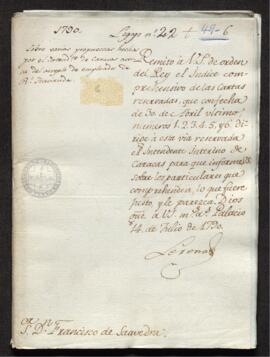 1790.
Legajo nº 22 + 49-6
Sobre varias propuestas hechas
por el Intend.te de Caracas acer-
ca de arreglo de empleados de
Rl. Hacienda.
6
Remito á V.S. de orden
del Rey el Indice com-
prehensivo de las Cartas
reservadas, que con fecha
de 30 de Abril ultimo
numeros 1, 2, 3, 4, 5, y 6. di-
rige á esta via reservada
el Intendente Interino de
Caracas para que informe
sobre los particulares que
comprehenden, lo que fuere
justo, y le parezca. Dios
gue. á V.S. ms. as. Palacio
14 de Julio de 1790.
Lerena
Sr. Dn. Francisco de Saavedra.